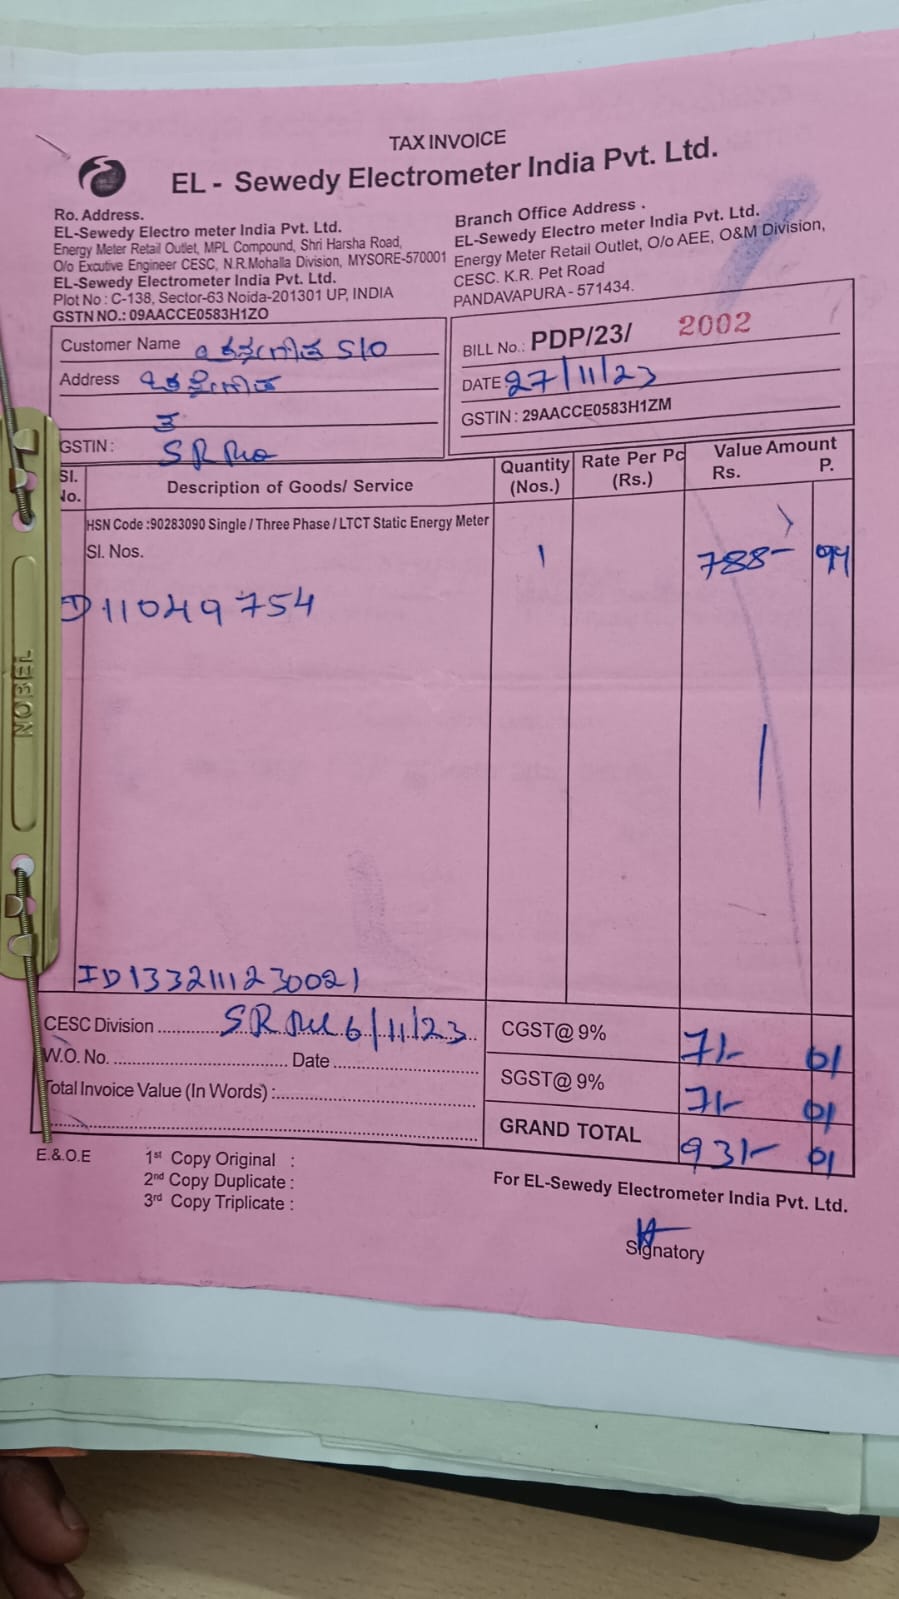 TAX INVOICE
EL - Sewedy Electrometer India Pvt. Ltd.
Ro. Address.
EL-Sewedy Electro meter India Pvt. Ltd.
Energy Meter Retail Outlet, MPL Compound, Shri Harsha Road,
O/o Excutive Engineer CESC, N.R.Mohalla Division, MYSORE-570001
EL-Sewedy Electrometer India Pvt. Ltd.
Plot No : C-138, Sector-63 Noida-201301 UP, INDIA
GSTN NO.: 09AACCE0583H1ZO
Branch Office Address .
EL-Sewedy Electro meter India Pvt. Ltd.
Energy Meter Retail Outlet, O/o AEE, O&M Division,
CESC. K.R. Pet Road
PANDAVAPURA - 571434.
Customer Name S/O
Address
GSTIN :
BILL No.: PDP/23/ 2002
DATE 27/11/23
GSTIN : 29AACCE0583H1ZM
Sl. No.
Description of Goods/ Service
Quantity (Nos.)
Rate Per Pc (Rs.)
Value Amount
Rs. P.
HSN Code :90283090 Single / Three Phase / LTCT Static Energy Meter
Sl. Nos. 1 788-
11049754
NOBEL
ID133211230021
CESC Division 6/11/23
W.O. No. Date
Total Invoice Value (In Words) :
CGST@ 9% 71- 01
SGST@ 9% 71- 01
GRAND TOTAL 931- 01
E.&.O.E
1st Copy Original :
2nd Copy Duplicate :
3rd Copy Triplicate :
For EL-Sewedy Electrometer India Pvt. Ltd.
Signatory